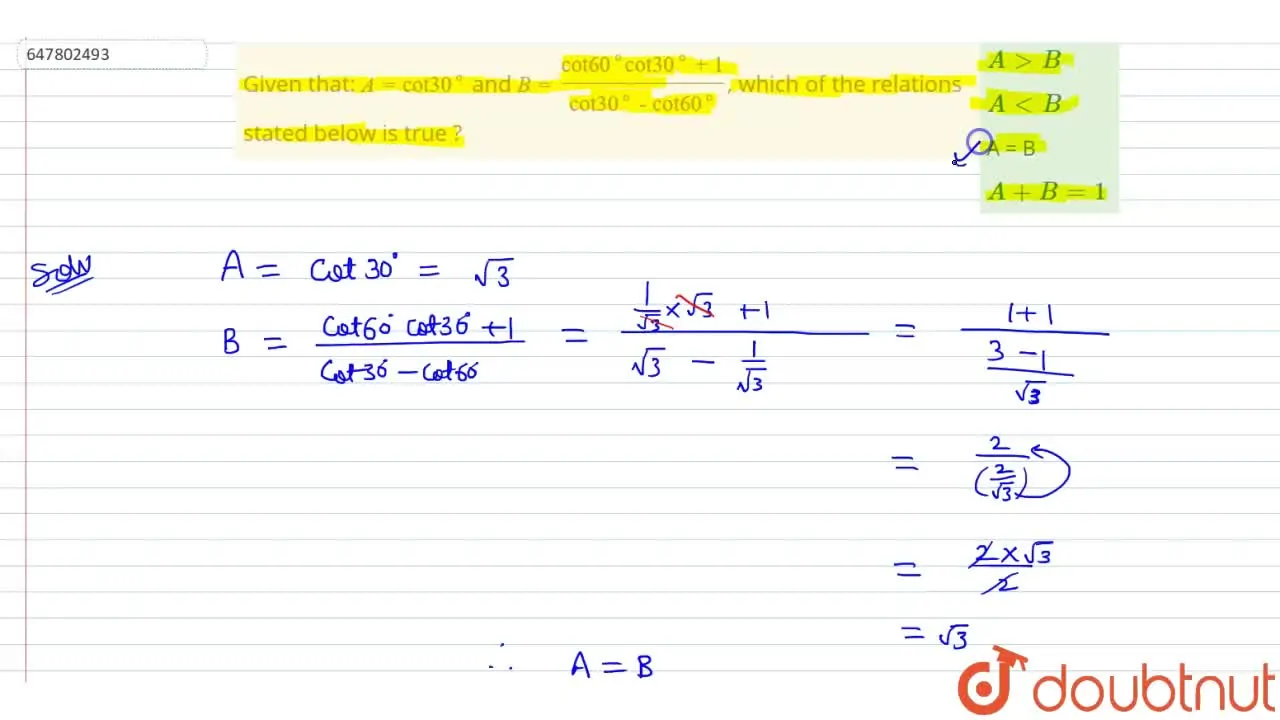 647802493
Given that: A = cot30° and B = (cot60°cot30° + 1)/(cot30° - cot60°), which of the relations
stated below is true ?
A > B
A < B
A = B
A + B = 1
Soln
A = cot 30° = √3
B = (cot60° cot30° + 1)/(cot30° - cot60°) = (1/√3 × √3 + 1)/(√3 - 1/√3) = (1+1)/((3-1)/√3)
= 2/(2/√3)
= (2×√3)/2
= √3
∴ A = B
doubtnut